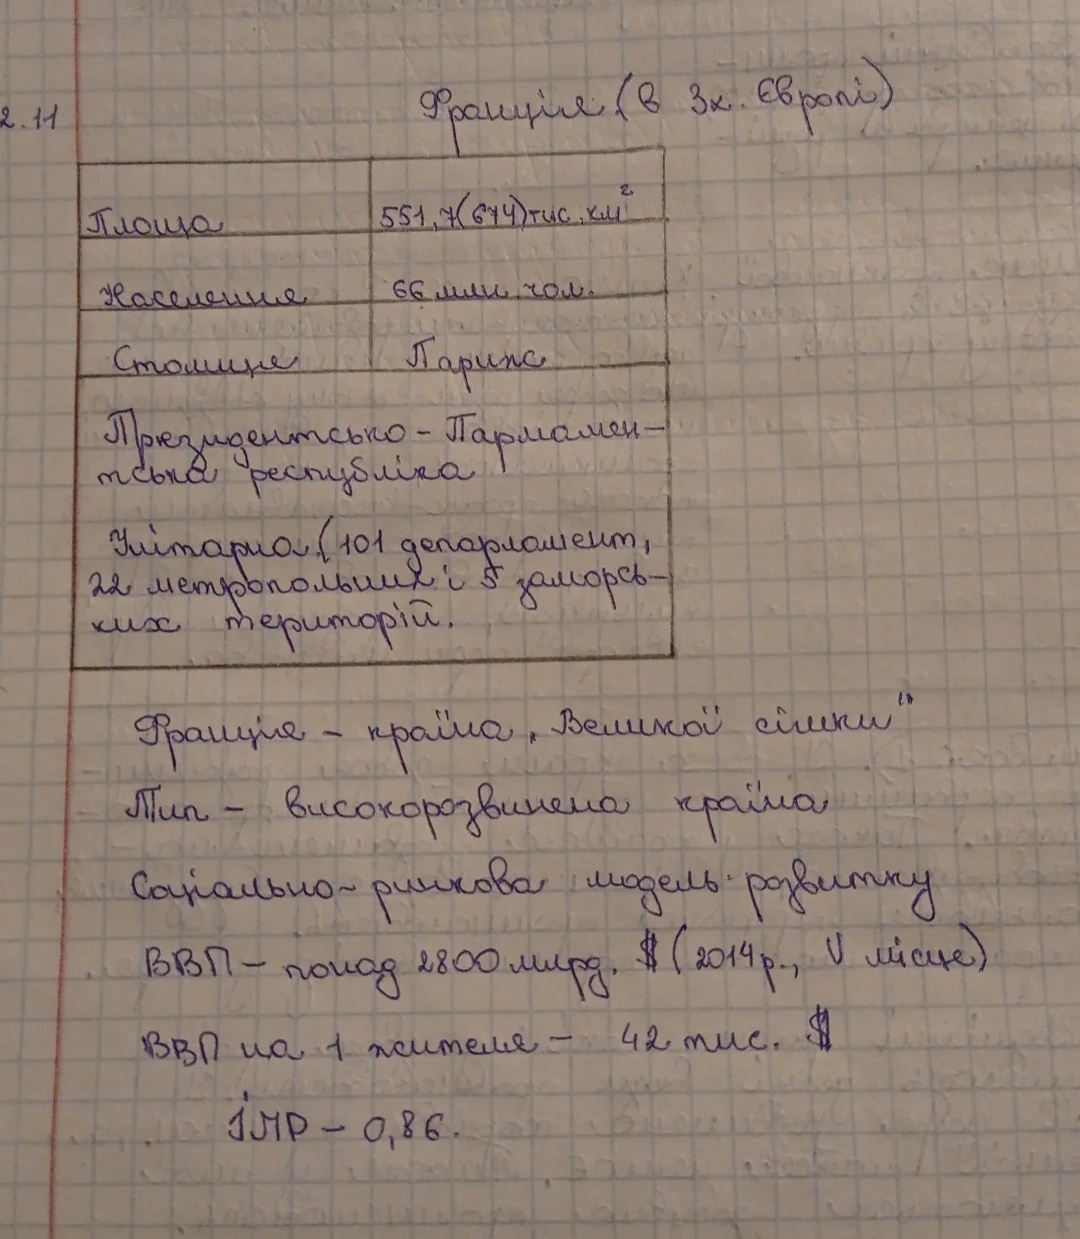 2.11
Франція (в Зх. Європі)
Площа 551,7(674)тис.км²
Населення 66 млн. чол.
Столиця Париж
Президентсько-Парламен-
тська республіка
Унітарна (101 департамент,
22 метропольних і 5 заморсь-
ких територій.
Франція - країна „Великої сімки“
Тип - високорозвинена країна
Соціально-ринкова модель розвитку
ВВП - понад 2800 млрд. $ (2014р., V місце)
ВВП на 1 жителя - 42 тис. $
ІЛР - 0,86.